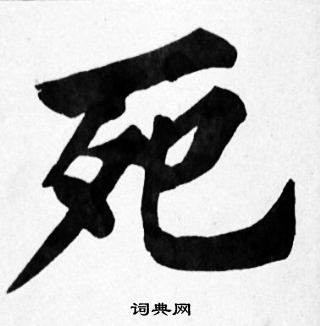 死
词典网